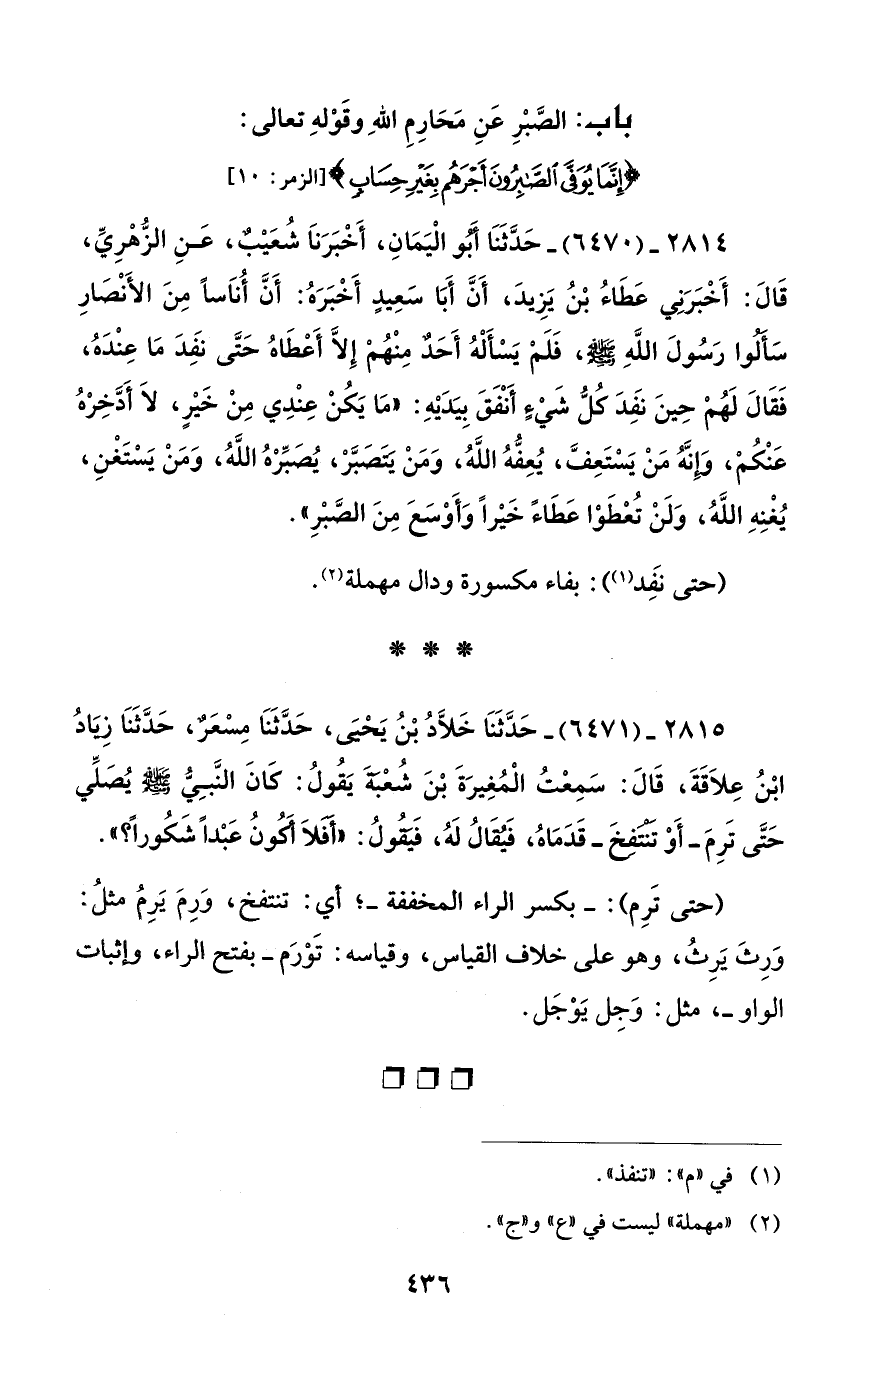 باب: الصَّبْرِ عَنِ مَحَارِمِ اللهِ وقَوْلهِ تعالى:
﴿إِنَّمَا يُوَفَّى الصَّابِرُونَ أَجْرَهُم بِغَيْرِ حِسَابٍ﴾ [الزمر: ١٠]
٢٨١٤ ـ (٦٤٧٠) ـ حَدَّثَنَا أَبُو الْيَمَانِ، أَخْبَرَنَا شُعَيْبٌ، عَنِ الزُّهْرِيِّ،
قَالَ: أَخْبَرَنِي عَطَاءُ بْنُ يَزِيدَ، أَنَّ أَبَا سَعِيدٍ أَخْبَرَهُ: أَنَّ أُنَاساً مِنَ الأَنْصَارِ
سَأَلُوا رَسُولَ اللَّهِ ﷺ، فَلَمْ يَسْأَلْهُ أَحَدٌ مِنْهُمْ إِلاَّ أَعْطَاهُ حَتَّى نَفِدَ مَا عِنْدَهُ،
فَقَالَ لَهُمْ حِينَ نَفِدَ كُلُّ شَيْءٍ أَنْفَقَ بِيَدَيْهِ: «مَا يَكُنْ عِنْدِي مِنْ خَيْرٍ، لاَ أَدَّخِرْهُ
عَنْكُمْ، وَإِنَّهُ مَنْ يَسْتَعِفَّ، يُعِفُّهُ اللَّهُ، وَمَنْ يَتَصَبَّرْ، يُصَبِّرْهُ اللَّهُ، وَمَنْ يَسْتَغْنِ،
يُغْنِهِ اللَّهُ، وَلَنْ تُعْطَوْا عَطَاءً خَيْراً وَأَوْسَعَ مِنَ الصَّبْرِ».
(حتى نَفِد(١)): بفاء مكسورة ودال مهملة(٢).
* * *
٢٨١٥ ـ (٦٤٧١) ـ حَدَّثَنَا خَلاَّدُ بْنُ يَحْيَى، حَدَّثَنَا مِسْعَرٌ، حَدَّثَنَا زِيَادُ
ابْنُ عِلاَقَةَ، قَالَ: سَمِعْتُ الْمُغِيرَةَ بْنَ شُعْبَةَ يَقُولُ: كَانَ النَّبِيُّ ﷺ يُصَلِّي
حَتَّى تَرِمَ ـ أَوْ تَنْتَفِخَ ـ قَدَمَاهُ، فَيُقَالُ لَهُ، فَيَقُولُ: «أَفَلاَ أَكُونُ عَبْداً شَكُوراً؟».
(حتى تَرِم): ـ بكسر الراء المخففة ـ؛ أي: تنتفخ، وَرِمَ يَرِمُ مثلُ:
وَرِثَ يَرِثُ، وهو على خلاف القياس، وقياسه: تَوْرَم ـ بفتح الراء، وإثبات
الواو ـ، مثل: وَجِل يَوْجَل.
□ □ □
(١) في «م»: «تنفذ».
(٢) «مهملة» ليست في «ع» و«ج».
٤٣٦